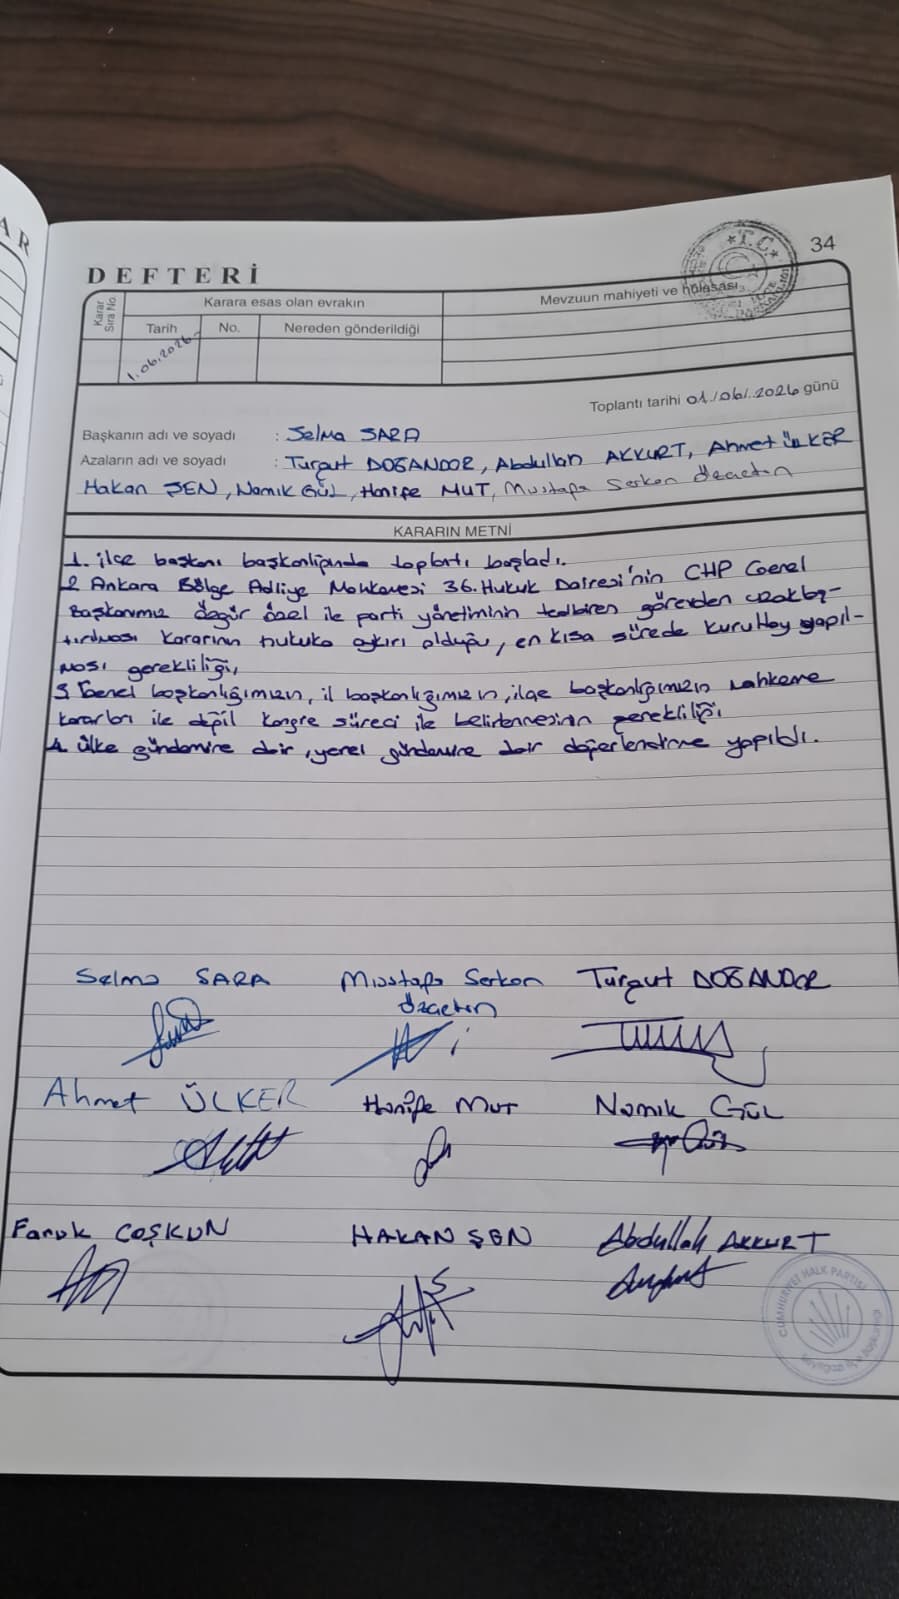 AR
DEFTERİ
34
T.C.
Karar Sıra No
Karara esas olan evrakın
Mevzuun mahiyeti ve hülasası
Tarih No. Nereden gönderildiği
1.06.2026
Toplantı tarihi 01/06/2026 günü
Başkanın adı ve soyadı : Selma SARA
Azaların adı ve soyadı : Turgut DOĞANDOR, Abdullah AKKURT, Ahmet ÜLKER
Hakan ŞEN, Namık GÜL, Hanife MUT, Mustafa Serkan Özaçtın
KARARIN METNİ
1. ilçe başkanı başkanlığında toplantı başladı.
2 Ankara Bölge Adliye Mahkemesi 36. Hukuk Dairesi'nin CHP Genel
Başkanımız Özgür Özel ile parti yönetiminin tedbiren görevden uzaklaş-
tırılması kararının hukuka aykırı olduğu, en kısa sürede kurultay yapıl-
ması gerekliliği,
3 Genel başkanlığımızın, il başkanlığımızın, ilçe başkanlığımızın mahkeme
kararları ile değil kongre süreci ile belirlenmesinin gerekliliği
4. ülke gündemine dair, yerel gündemine dair değerlendirme yapıldı.
Selma SARA Mustafa Serkan Özaçtın Turgut DOĞANDOR
Ahmet ÜLKER Hanife MUT Namık GÜL
Faruk COŞKUN HAKAN ŞEN Abdullah AKKURT
CUMHURİYET HALK PARTİSİ